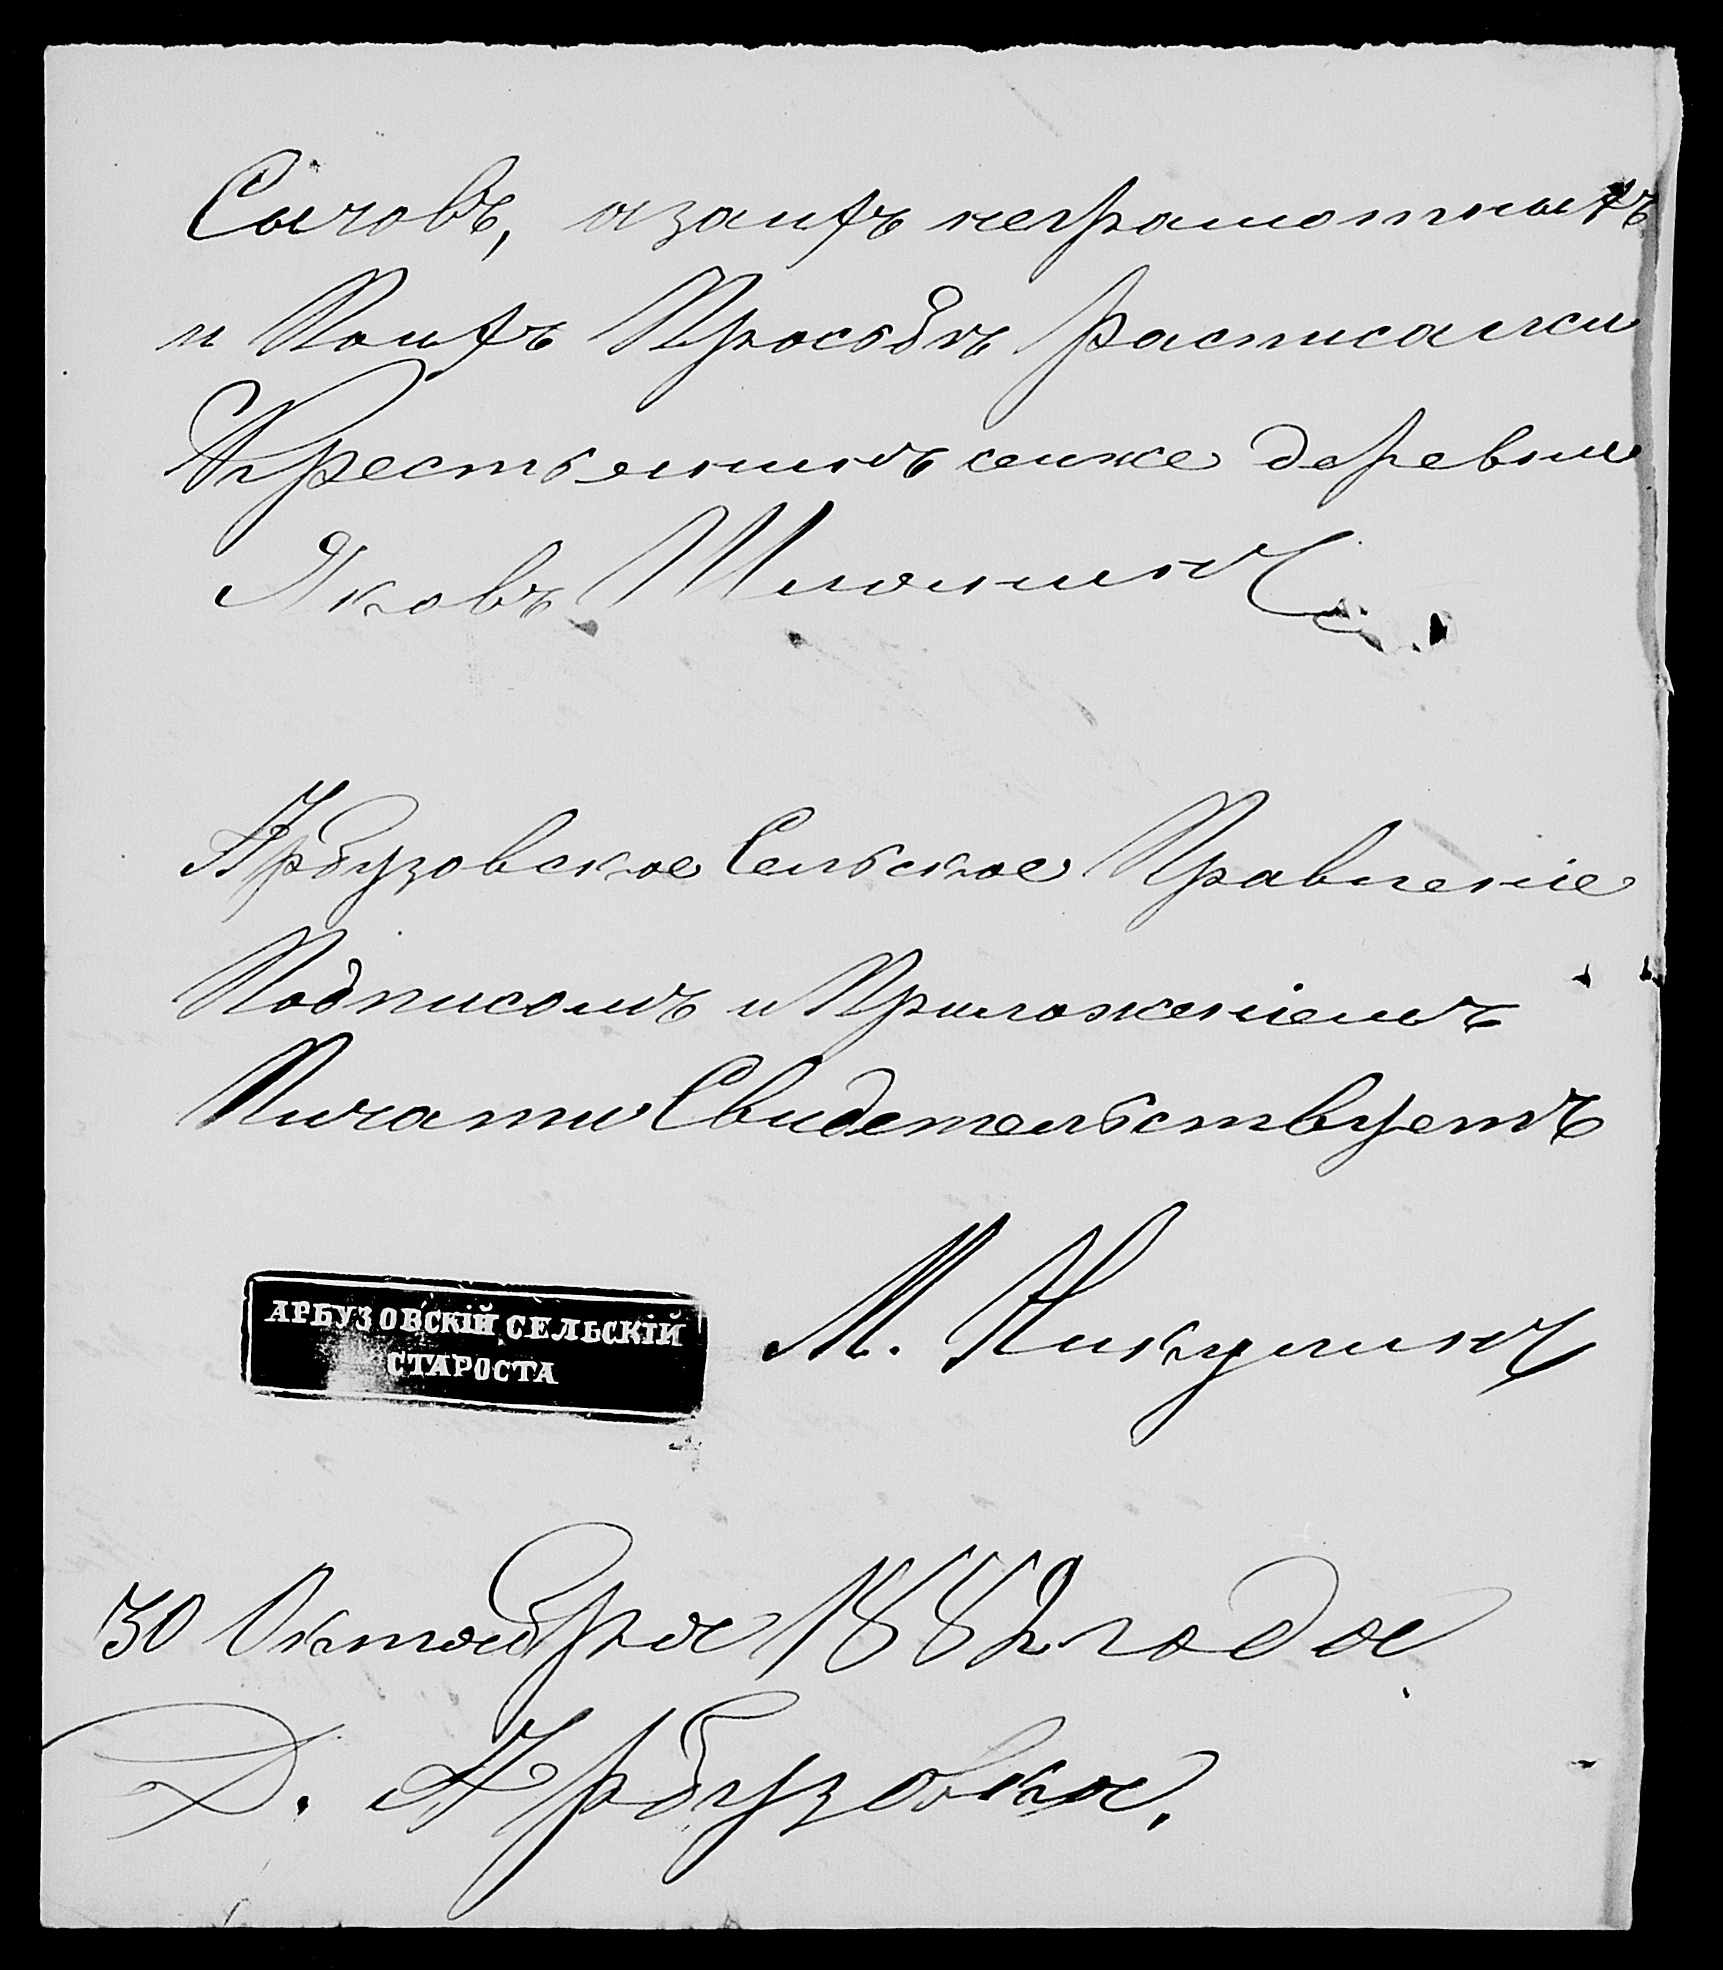 Сычовъ, а заихъ неграмотныхъ
и Поихъ Прособѣ расписалси
Крестьянинъ сейже деревни
Яковъ
Арбузовское Сельское Правленіе
Подписомъ и Приложеніемъ
Пичати Свидетельствуетъ
М. Никулинъ
АРБУЗОВСКІЙ СЕЛЬСКІЙ
СТАРОСТА
30 Октября 1882 года
Д. Арбузовка.